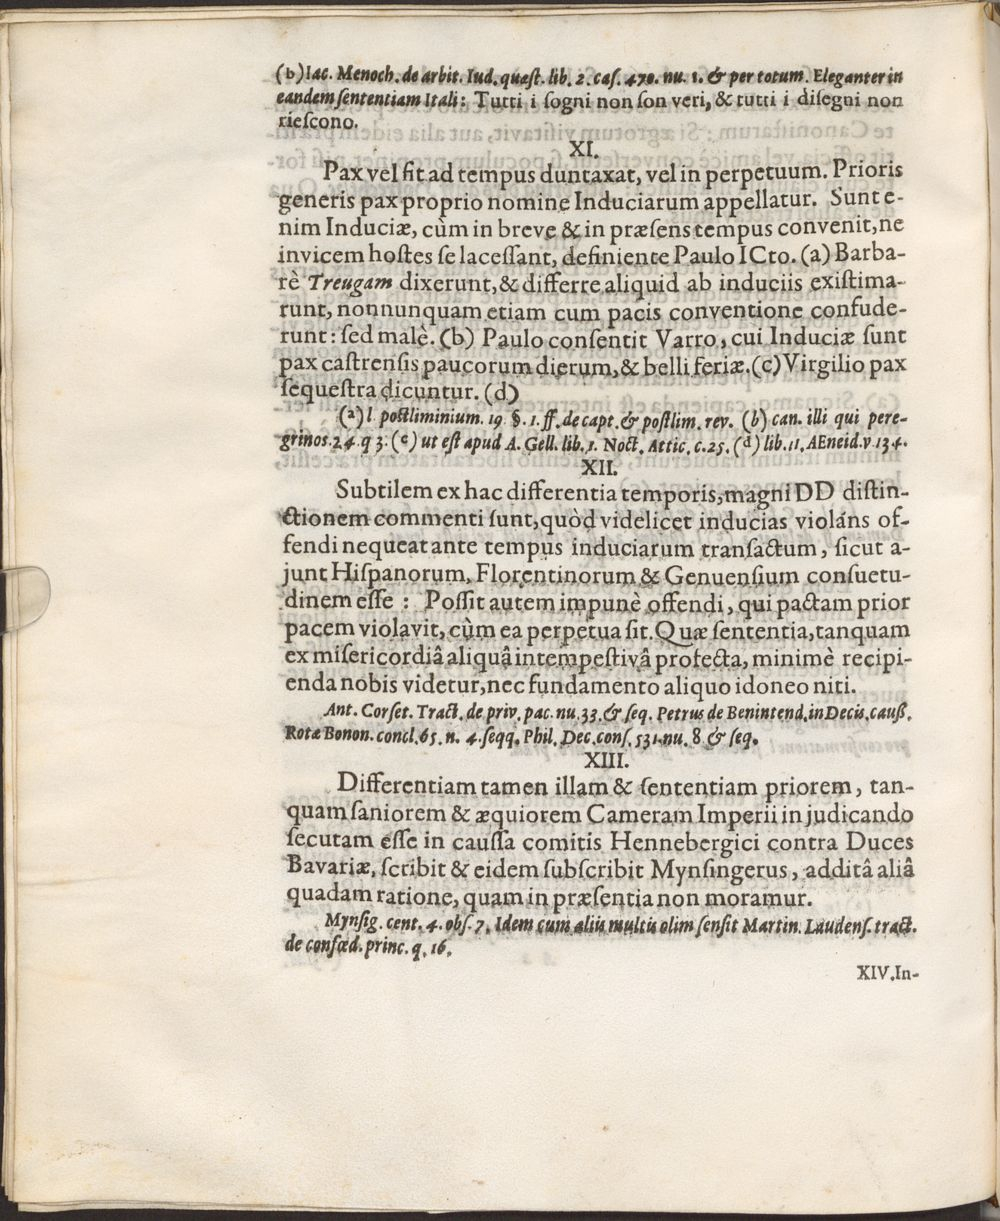 (b) Iac. Menoch. de arbit. Iud. quæst. lib. 2. caſ. 470. nu. 1. & per totum. Eleganter in
eandem ſententiam Itali: Tutti i ſogni non ſon veri, & tutti i diſegni non
rieſcono.
XI.
Pax vel fit ad tempus duntaxat, vel in perpetuum. Prioris
generis pax proprio nomine Induciarum appellatur. Sunt e-
nim Induciæ, cùm in breve & in præſens tempus convenit, ne
invicem hoſtes ſe laceſſant, definiente Paulo ICto. (a) Barba-
rè Treugam dixerunt, & differre aliquid ab induciis exiſtima-
runt, nonnunquam etiam cum pacis conventione confude-
runt: ſed malè. (b) Paulo conſentit Varro, cui Induciæ ſunt
pax caſtrenſis paucorum dierum, & belli feriæ. (c) Virgilio pax
ſequeſtra dicuntur. (d)
(a) l poſtliminium. 19. §. 1. ff. de capt. & poſtlim. rev. (b) can. illi qui pere-
grinos. 24. q 3. (c) ut eſt apud A. Gell. lib. 1. Noct. Attic. c. 25. (d) lib. 11. AEneid. v 134.
XII.
Subtilem ex hac differentia temporis, magni DD diſtin-
ctionem commenti ſunt, quòd videlicet inducias violáns of-
fendi nequeat ante tempus induciarum tranſactum, ſicut a-
junt Hiſpanorum, Florentinorum & Genuenſium conſuetu-
dinem eſſe : Poſſit autem impunè offendi, qui pactam prior
pacem violavit, cùm ea perpetua ſit. Quæ ſententia, tanquam
ex miſericordiâ aliquâ intempeſtivâ profecta, minimè recipi-
enda nobis videtur, nec fundamento aliquo idoneo niti.
Ant. Corſet. Tract. de priv. pac. nu. 33. & ſeq. Petrus de Benintend. in Decis. cauß.
Rotæ Bonon. concl. 65. n. 4. ſeqq. Phil. Dec. conſ. 531. nu. 8 & ſeq.
XIII.
Differentiam tamen illam & ſententiam priorem, tan-
quam ſaniorem & æquiorem Cameram Imperii in judicando
ſecutam eſſe in cauſſa comitis Hennebergici contra Duces
Bavariæ, ſcribit & eidem ſubſcribit Mynſingerus, additâ aliâ
quadam ratione, quam in præſentia non moramur.
Mynſig. cent. 4. obſ. 7. Idem cum aliis multis olim ſenſit Martin. Laudenſ. tract.
de confœd. princ. q. 16.
XIV. In-